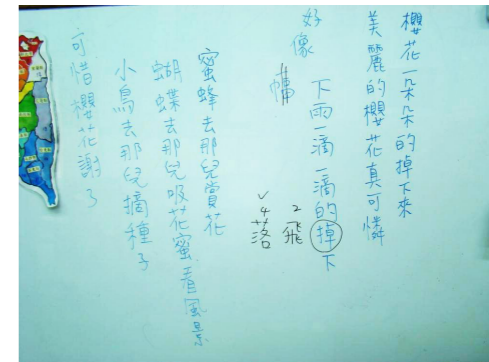 櫻花一朵朵的掉下來
美麗的櫻花真可憐
好像
下雨一滴一滴的掉下
2飛
✓4落
蜜蜂去那兒賞花
蝴蝶去那兒吸花蜜看風景
小鳥去那兒摘種子
可惜櫻花謝了